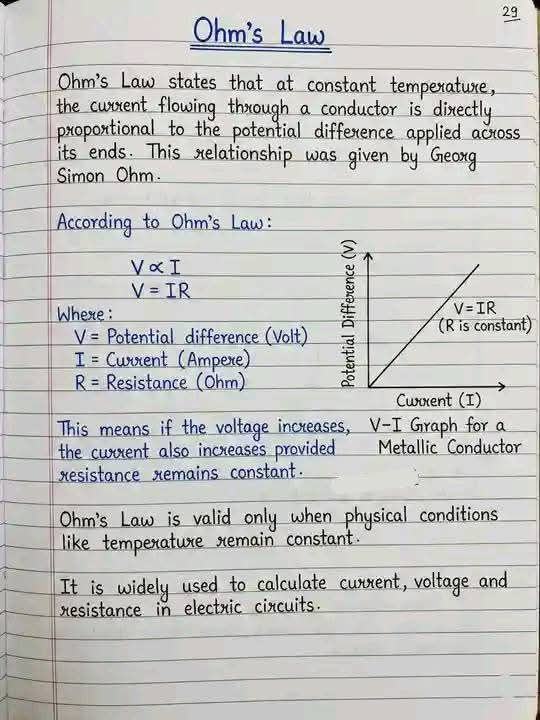 29
Ohm's Law
Ohm's Law states that at constant temperature,
the current flowing through a conductor is directly
proportional to the potential difference applied across
its ends. This relationship was given by Georg
Simon Ohm.
According to Ohm's Law:
V ∝ I
V = IR
Where:
V = Potential difference (Volt)
I = Current (Ampere)
R = Resistance (Ohm)
Potential Difference (V)
V = IR
(R is constant)
Current (I)
V-I Graph for a
Metallic Conductor
This means if the voltage increases,
the current also increases provided
resistance remains constant.
Ohm's Law is valid only when physical conditions
like temperature remain constant.
It is widely used to calculate current, voltage and
resistance in electric circuits.